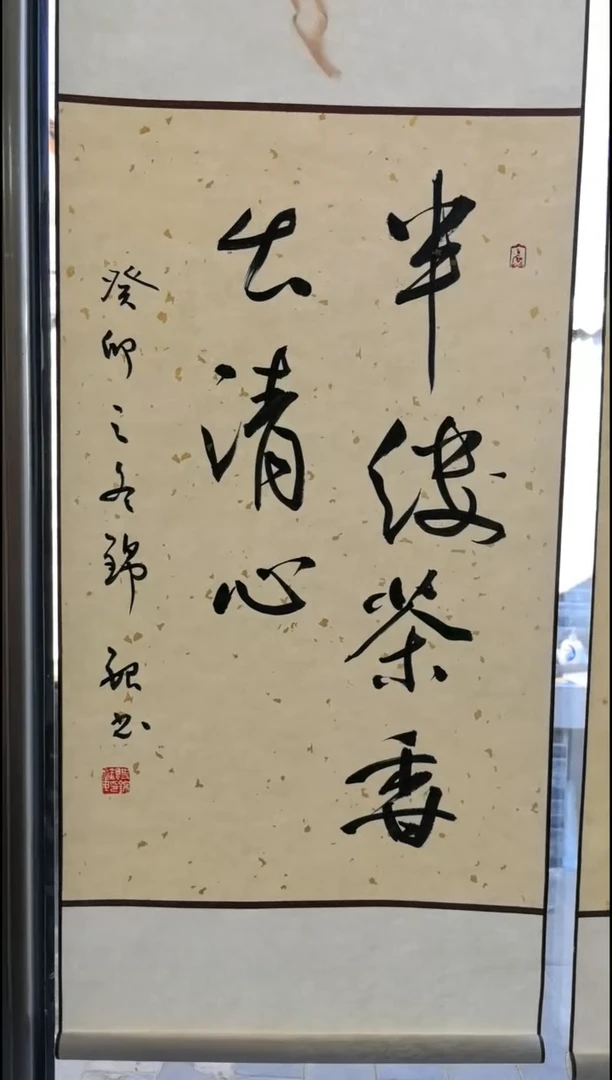 半缕茶香
去清心
癸卯之冬锦 书